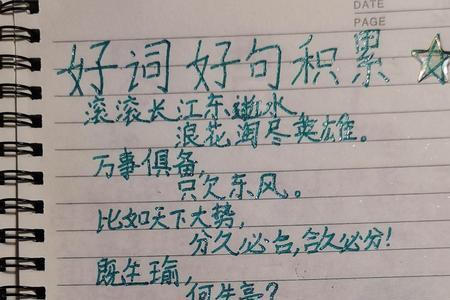 DATE
PAGE
好词好句积累
滚滚长江东逝水
浪花淘尽英雄。
万事俱备,
只欠东风。
比如天下大势,
分久必合,合久必分!
既生瑜,
何生亮?